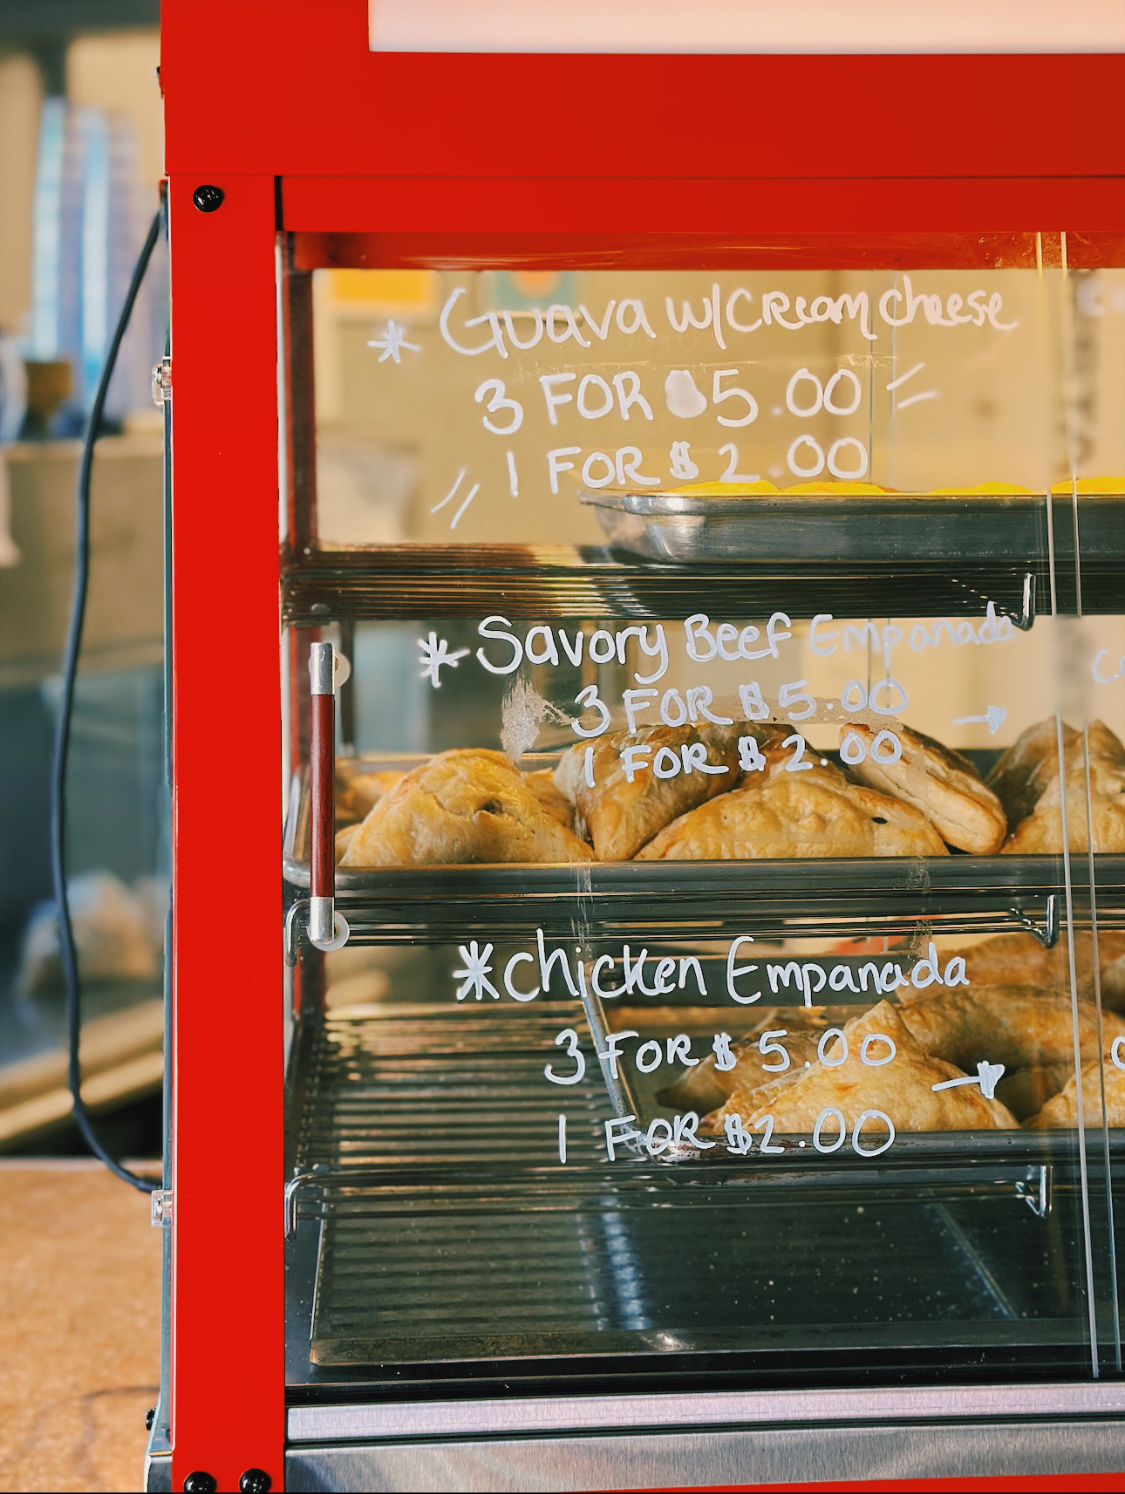 * Guava w/Cream cheese
3 FOR $5.00
1 FOR $2.00
* Savory Beef Empanada
3 FOR $5.00
1 FOR $2.00
* Chicken Empanada
3 FOR $5.00
1 FOR $2.00